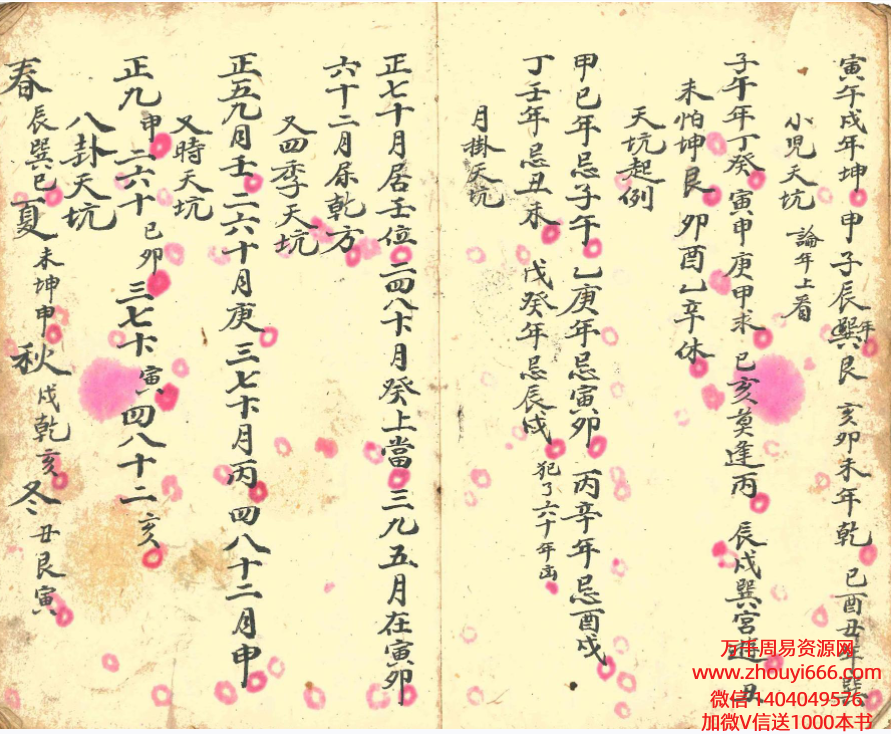 寅午戌年坤 甲子辰年巽艮 亥卯未年乾 巳酉丑年巽
小児天坑 論年上看
子午年丁癸 寅申庚甲求 巳亥莫逢丙 辰戌巽宫逰 丑
未怕坤艮 卯酉乙辛休
天坑起例
甲己年忌子午 乙庚年忌寅卯 丙辛年忌酉戌
丁壬年忌丑未 戊癸年忌辰戌 犯了六十年凶
月掛天坑
正七十月居壬位 二四八十月癸上當 三九五月在寅卯
六十二月 乾方
又四季天坑
正五九月壬 二六十月庚 三七十月丙 四八十二月申
又時天坑
正九申 二六十 巳卯 三七十 寅 四八十二 亥
八卦天坑
春辰巽巳 夏未坤申 秋戌乾亥 冬丑艮寅
万手周易资源网
www.zhouyi666.com
微信 1404049576
加微V信送1000本书